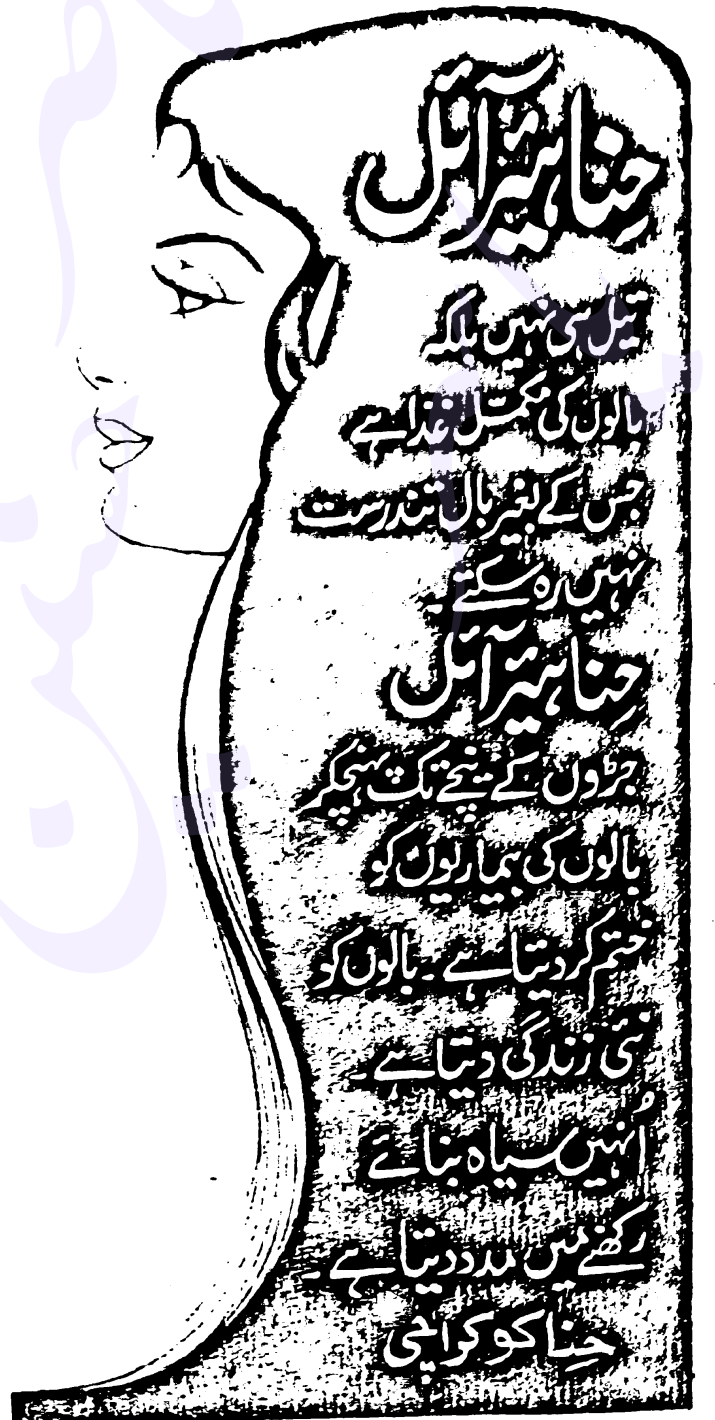 حِنا ہیئر آئل
تیل ہی نہیں بلکہ
بالوں کی مکمّل غذا ہے
جس کے بغیر بال تندرست
نہیں رہ سکتے۔
حِنا ہیئر آئل
جڑوں کے نیچے تک پہنچکر
بالوں کی بیماریوں کو
ختم کر دیتا ہے۔ بالوں کو
نئی زندگی دیتا ہے۔
اُنہیں سیاہ بنائے
رکھنے میں مدد دیتا ہے۔
حِنا کو کراچی